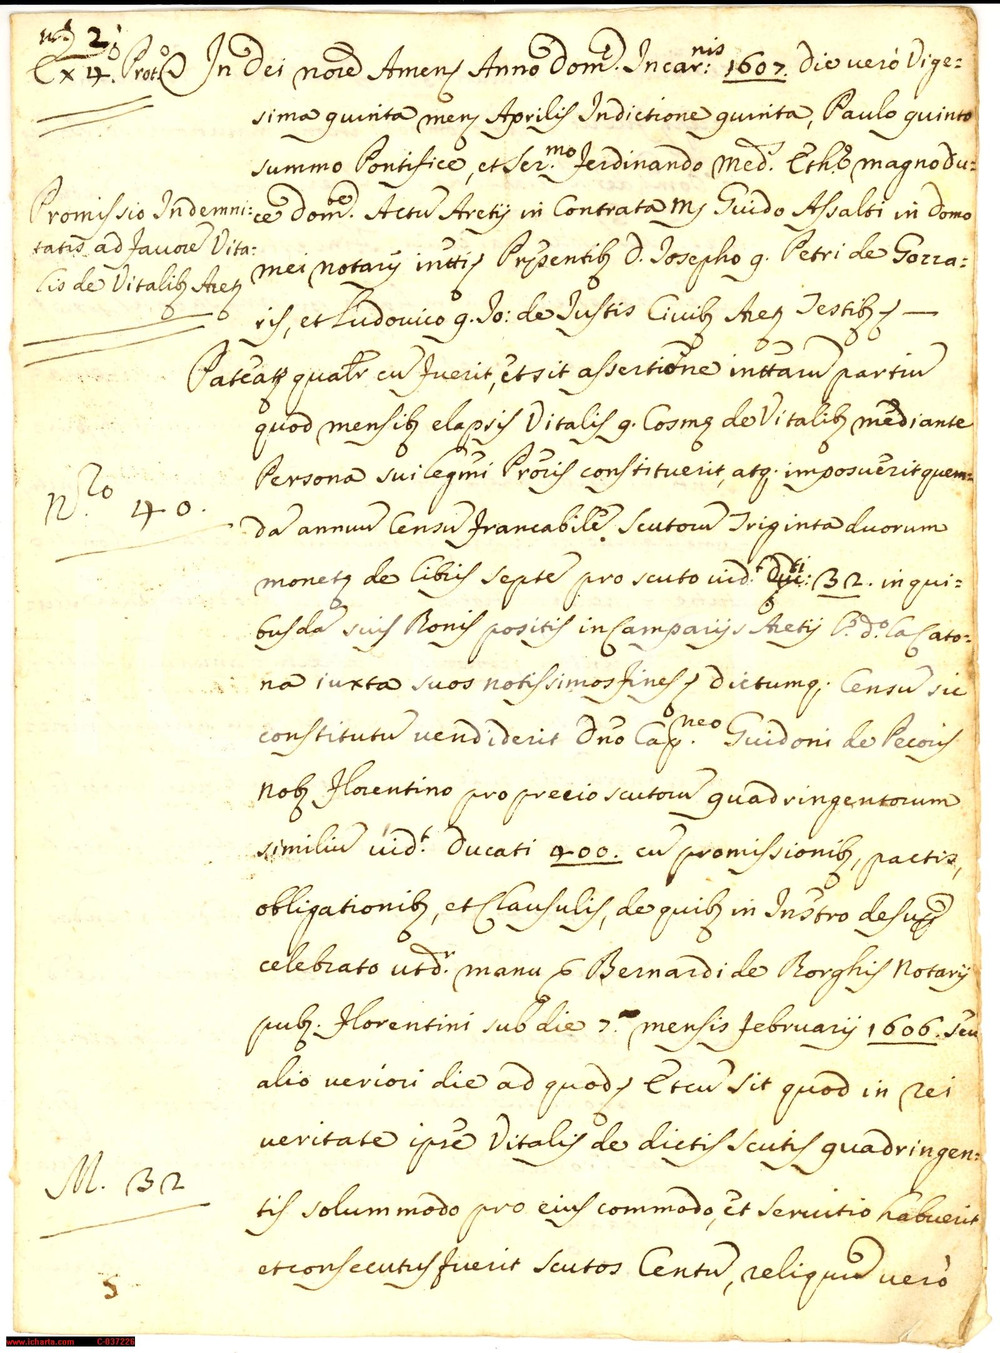 nº 2º
Ex 4º Protº
In Dei noīe Amen Anno Domī. Incar:nis 1607. die verò Vige=
sima quinta mens Aprilis Indictione quinta, Paulo quinto
summo Pontifice, et Ser.mo Ferdinando Med. Eth: magno Du=
ce Domīne. Actū Aretij in Contrata Guido Assalti in domo
mei notarij Pr̄sentib D. Josepho q. Petri de Gozza=
ris, et Ludovico q. Jo: de Justis Civib Aren Testib
Promissio Indemni=
tatis ad favorē Vita=
lis de Vitalib Aren
Pateat qualr cū fuerit, et sit assertiōne inttarū partiū
quod mensib elapsis Vitalis q. Cosmę de Vitalib mediante
Persona sui legmi Proris constituerit, atq. imposuerit quem=
dā annuū Censū francabilē scutorū Triginta duorum
monetę de libris septē pro scuto vidt. 32. in qui=
busdā suis Bonis positis in Camparijs Aretij la Cato=
na iuxta suos notissimos fines, dictumq. Censū sic
constitutū vendiderit Dn̄o Cap.neo Guidoni de Pecoris
Nob Florentino pro precio scutorū quadringentorum
similiū vidt. Ducati 400. cū promissionib, pactis,
obligationib, et Clausulis, de quib in Instro desup
celebrato utdr. manu Bernardi de Borghis Notarij
pub. Florentini sub die 7.a mensis februarij 1606. seu
alio veriori die ad quod Et cū sit quod in rei
veritate ipse Vitalis de dictis scutis quadringen=
tis solummodo pro eius commodo, et servitio habuerit
et consecutus fuerit scutos Centū, reliquū verò
N.ro 40.
M. 32
5
www.icharta.com C-037226